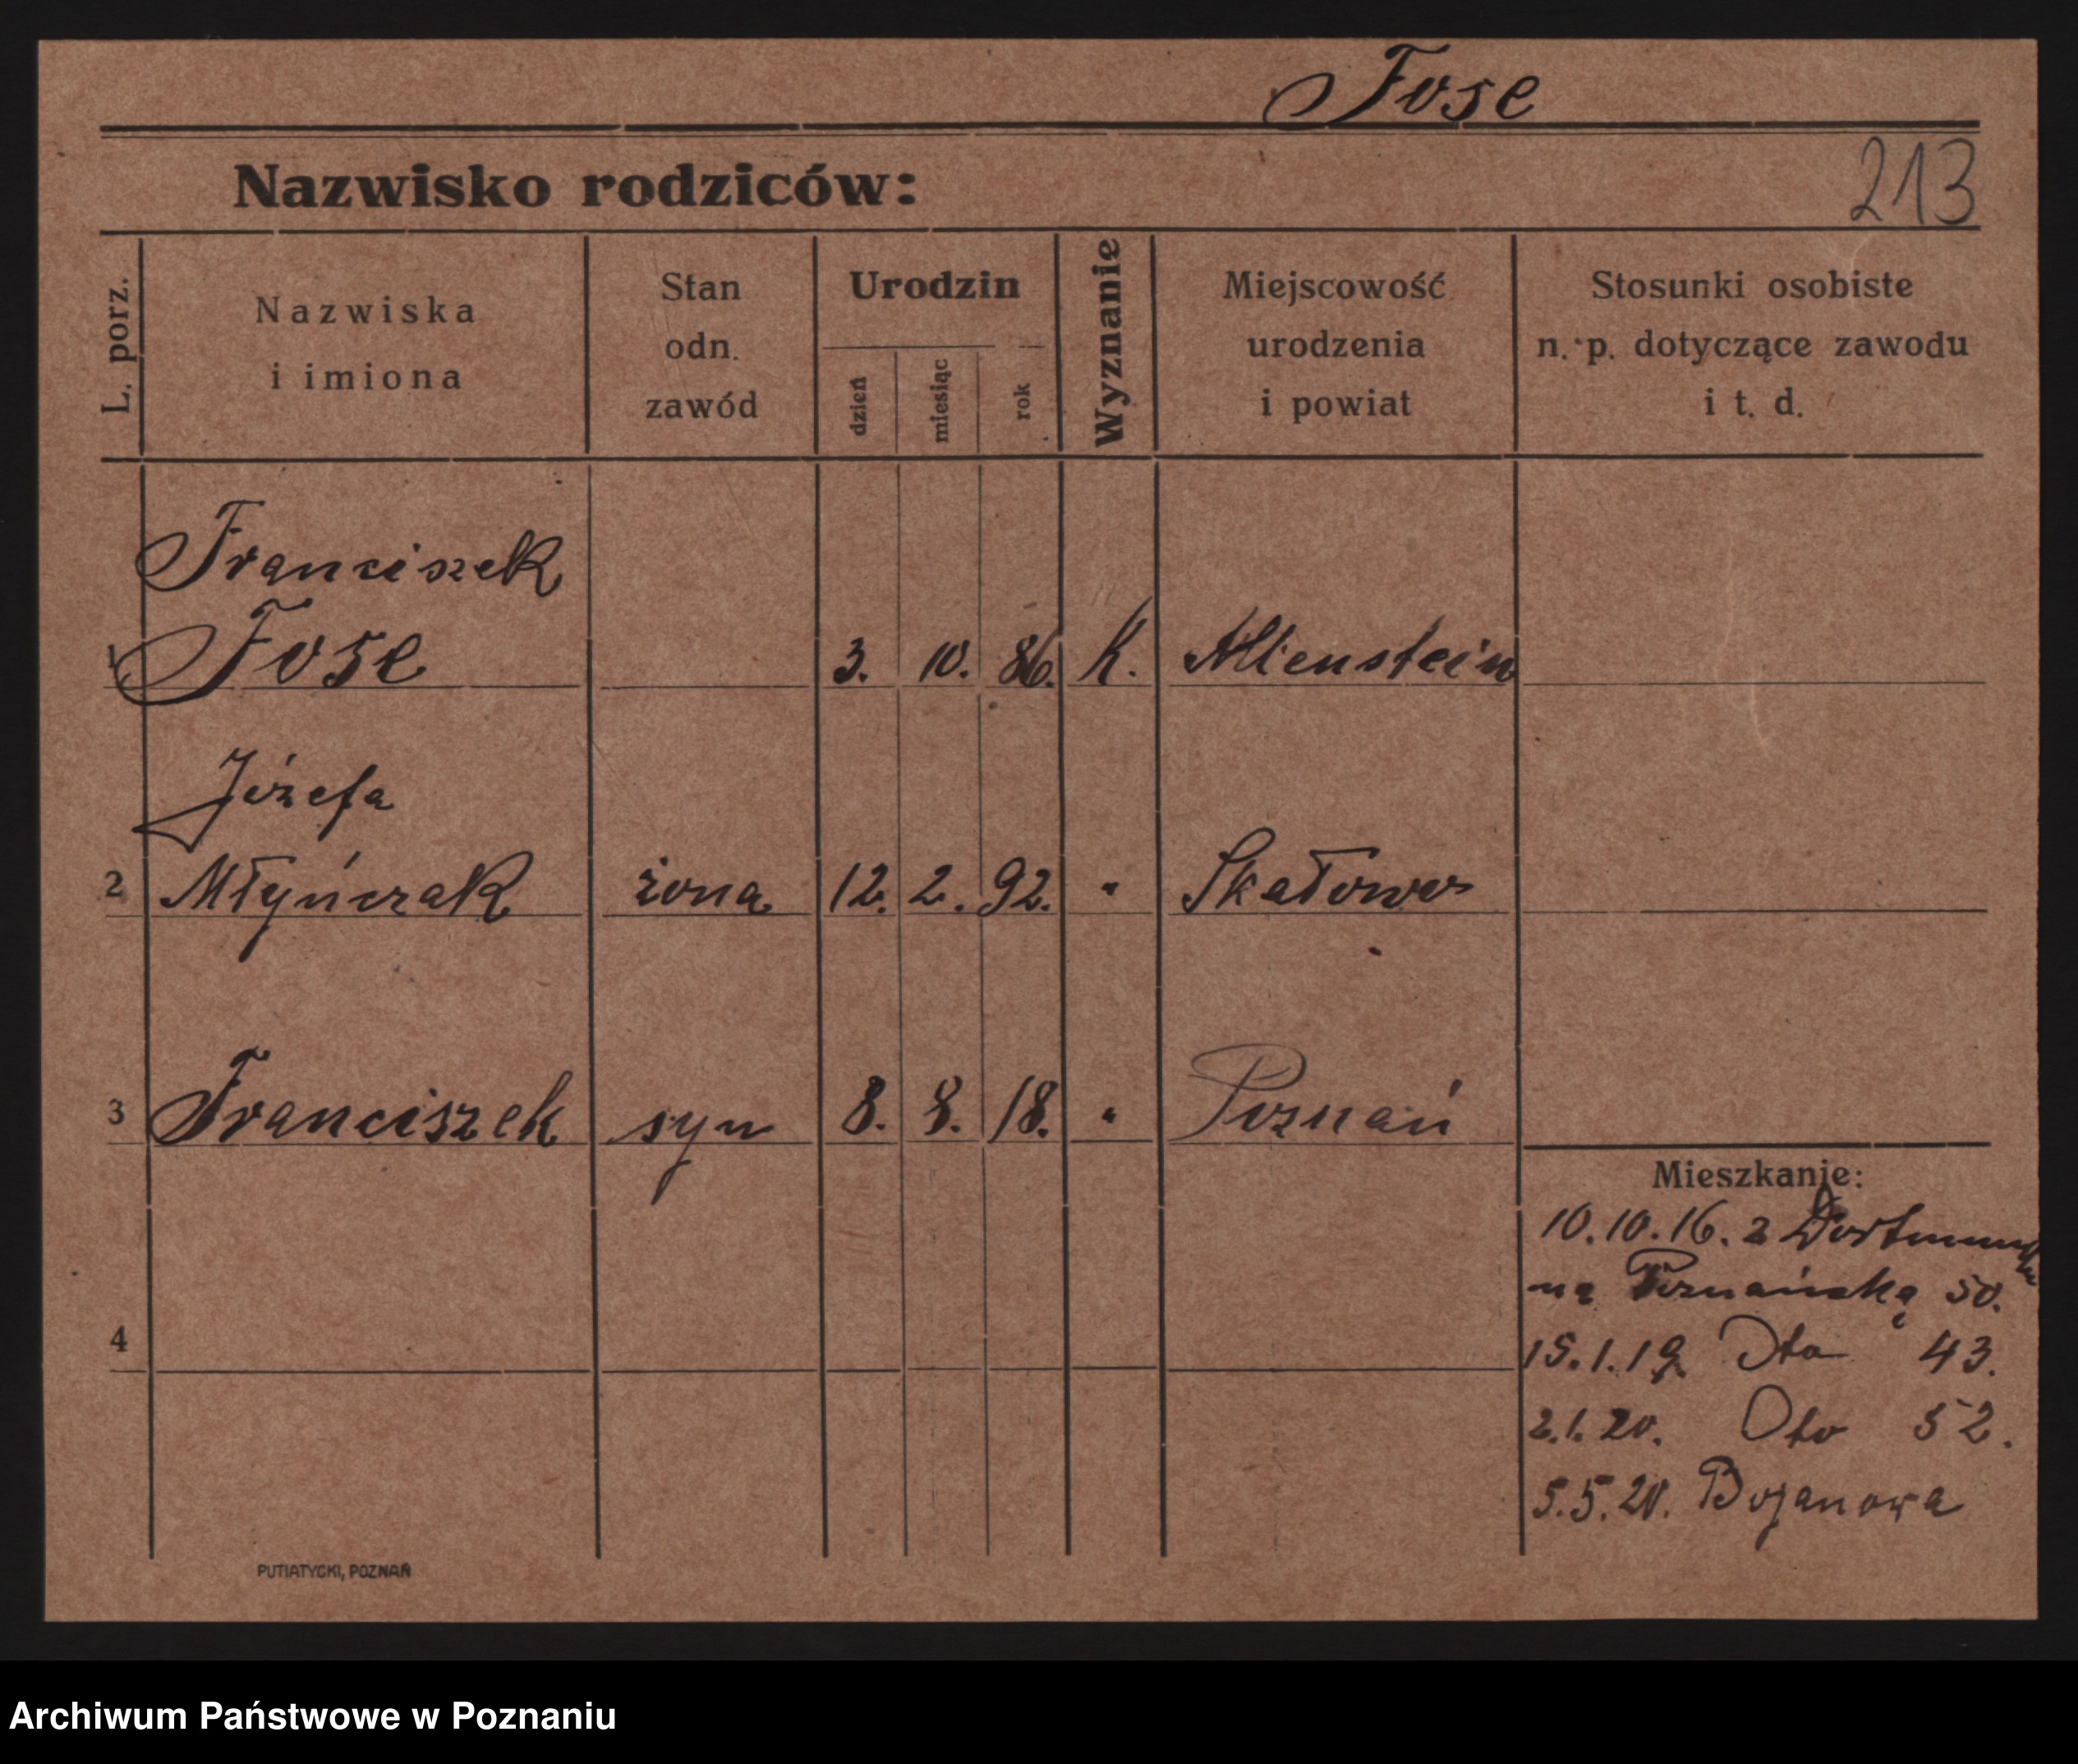 Fose
Nazwisko rodziców:
213
L. porz.
Nazwiska
i imiona
Stan
odn.
zawód
Urodzin
dzień
miesiąc
rok
Wyznanie
Miejscowość
urodzenia
i powiat
Stosunki osobiste
n. p. dotyczące zawodu
i t. d.
Franciszek
1 Fose 3. 10. 86. K. Allenstein
Józefa
2 Młyńczak żona 12. 2. 92. " Skałowo
3 Franciszek syn 8. 8. 18. " Poznań
Mieszkanie:
10.10.16. z Dortmundu
na Poznańską 50.
15.1.19. Dto 43.
2.1.20. Dto 52.
5.5.20. Bojanowa
4
PUTIATYCKI, POZNAŃ
Archiwum Państwowe w Poznaniu